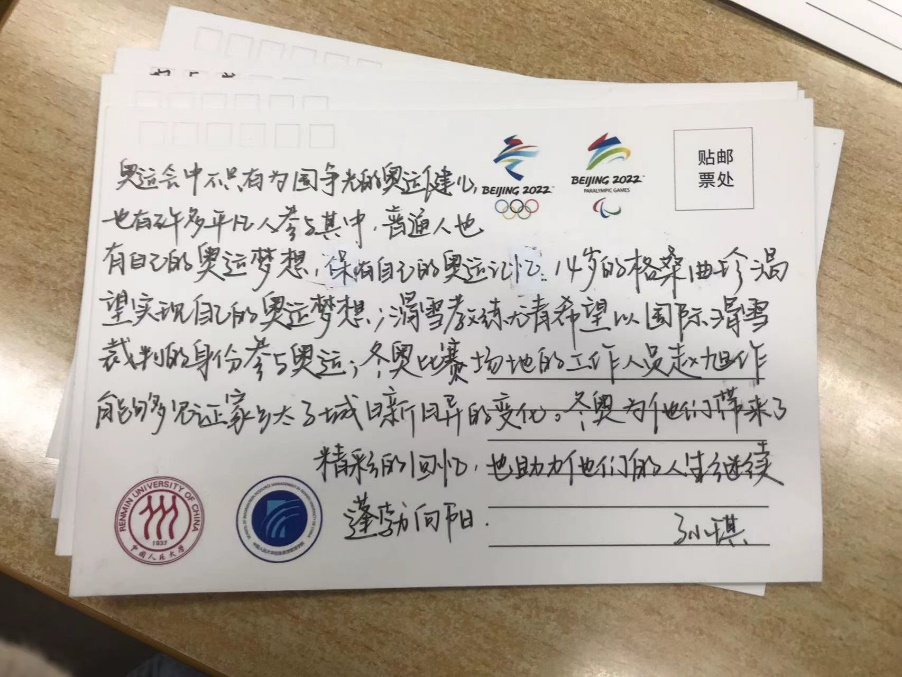 BEIJING 2022
BEIJING 2022
PARALYMPIC GAMES
贴邮
票处
奥运会中不只有为国争光的奥运健儿,
也有许多平凡人参与其中,普通人也
有自己的奥运梦想,保有自己的奥运记忆。14岁的格桑曲珍渴
望实现自己的奥运梦想;滑雪教练方清希望以国际滑雪
裁判的身份参与奥运;冬奥比赛场地的工作人员赵旭作
能够见证家乡太子城日新日异的变化。冬奥为他们带来了
精彩的回忆,也助力他们的人生继续
蓬勃向阳.
孙琪
RENMIN UNIVERSITY OF CHINA
1937
中国人民大学